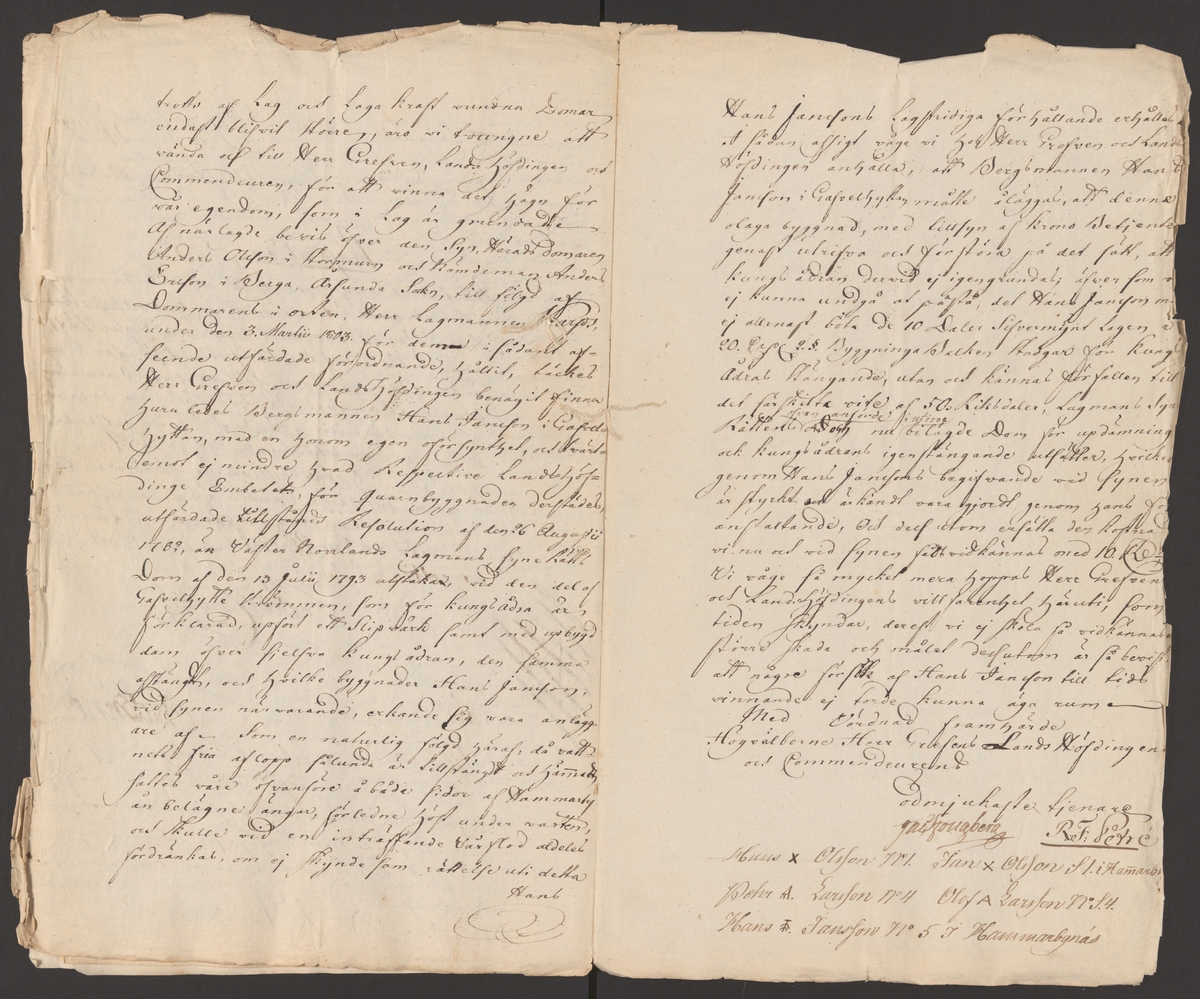 trotts af Lag och Laga kraft vundna Domar
endast Miswil Hörer, äro vi tvungne att
vända oss till Herr Grefven, Lands Höfdingen och
Commendeuren, för att vinna det hägn för
vår egendom, som i Lag är grundade
Af närlagde bevis öfver den Syn, Häradsdomaren
Anders Olsson i och Nämdeman Anders
Ersson i Berga, Årsunda Sokn, till följd af
Dommarens i orten, Herr Lagmannen
under den 3. Martii 1803. för dem i sådant af-
seende utfärdade förordnande, hållit, täckes
Herr Grefven och Lands Höfdingen benägit finna
huru ledes Bergsmannen Hans Jansson i Gasvel
hyttan, med en honom egen oförsynthet, och tvärt
emot ej mindre hvad Respective Lands Höf-
dinge Embetet, för Quarnbyggnaden derstädes,
utfärdade tillstånds Resolution af den 26 Augusti
1782, än Väster Norrlands Lagmans Syne Rätts
Dom af den 13 Julii 1793 utstakar, vid den del af
Gasvelhytte Strömmen, som för kungs ådra är
förklarad, upfört ett Slipvärk samt med upbygd
dam öfver sjelfva kungs ådran, den samma
afstängt, och hvilke byggnader Hans Jansson,
vid synen närvarande, erkände sig vara anlägg-
are af. Som en naturlig följd häraf, då vatt-
nets fria aflopp sålunda är tillstängt och hämmadt,
sattes våre ofvanföre å både sidor af Hammarby
ån belägne ängar, förledne Höst under vatten,
och skulle vid en inträffande Vårflod aldeles
fördränkas, om ej skyndesam rättelse uti detta
Hans
Hans Janssons Lagstridiga förhållande erhålles
I sådan afsigt våge vi hos Herr Grefven och Lands
Höfdingen anhålla, att Bergsmannen Hans
Jansson i Gasvelhyttan måtte åläggas, att denne
olaga byggnad, med tillsyn af Krono Betjente
genast utrifva och förstöra på det sätt, att
kungs ådran dervid ej igengrundas; äfven som vi
ej kunna undgå at påstå, det Hans Jansson m
ej allenast böta de 10 Daler Silfvermynt Lagen i
20. Cap. 2.§. Byggninga Balken stadgar för Kungs
ådras stängande, utan och kännas förfallen till
det särskilta vite af 50. Riksdaler, Lagmans Syn
ofvan anförde
Rättens nu bilagde Dom för updämning
och kungs ådrans igenstängande utsätter, hvilket
genom Hans Janssons begifvande vid synen
är styrkt, och erkändt vara gjordt genom hans för
anstaltande, och dessutom ersätta den kostnad
vi nu och vid synen fått vidkännas med 10. Rd
Vi våge så mycket mera hoppas Herr Grefven
och Lands Höfdingens villfarenhet häruti, som
tiden skyndar, derest vi ej skola så vidkännas
större skada och målet dessutom är så bevist,
att någre försök af Hans Jansson till tids
vinnande ej torde kunna äga rum
Med Vördnad framhärde
Högvälborne Herr Grefvens Lands Höfdingens
och Commendeurens
ödmjukaste tjenare
Ret: Petré
Hans X Olsson N:1. Jan X Olsson St: i Hammarby
Pehr A. Larsson N:4 Olof A Larsson N:o 4.
Hans Jansson N:o 5 I Hammarbynäs